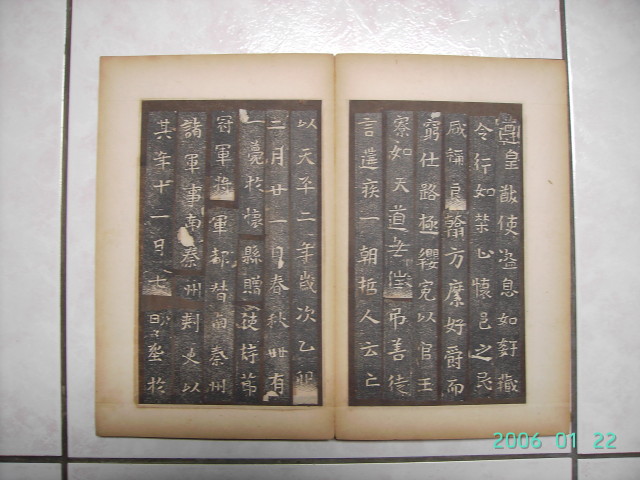 皇猷使盜息如奸藏
令行如禁止懷邑之民
咸誦良 方縻好爵而
窮仕路極纓冕以官王
寮如天道 吊善徒
言遘疾一朝哲人云亡
以天平二年歲次乙卯
二月廿一日春秋卌有
一薨於懷縣贈使持節
冠軍將軍都督南秦州
諸軍事南秦州刺史以
其年十一月七日 塟於
2006 01 22